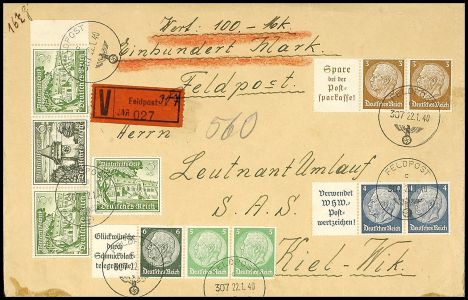 162 g
Wert: 100.- Mk.
Einhundert Mark.
Feldpost.
V Feldpost
№ 027
Herrn
560
Leutnant Umlauf
S. A. S.
Kiel-Wik.
FELDPOST
22.1.40
Spare
bei der
Post-
sparkasse!
3
Deutsches Reich
3
Deutsches Reich
307 22.1.40
FELDPOST
c
Verwendet
WHW.-
Post-
wertzeichen!
4
Deutsches Reich
4
Deutsches Reich
Deutsches Reich
Glückwünsche
durch
Schmuckblatt-
telegramme!
6
Deutsches Reich
5
Deutsches Reich
5
Deutsches Reich
307 22.1.40